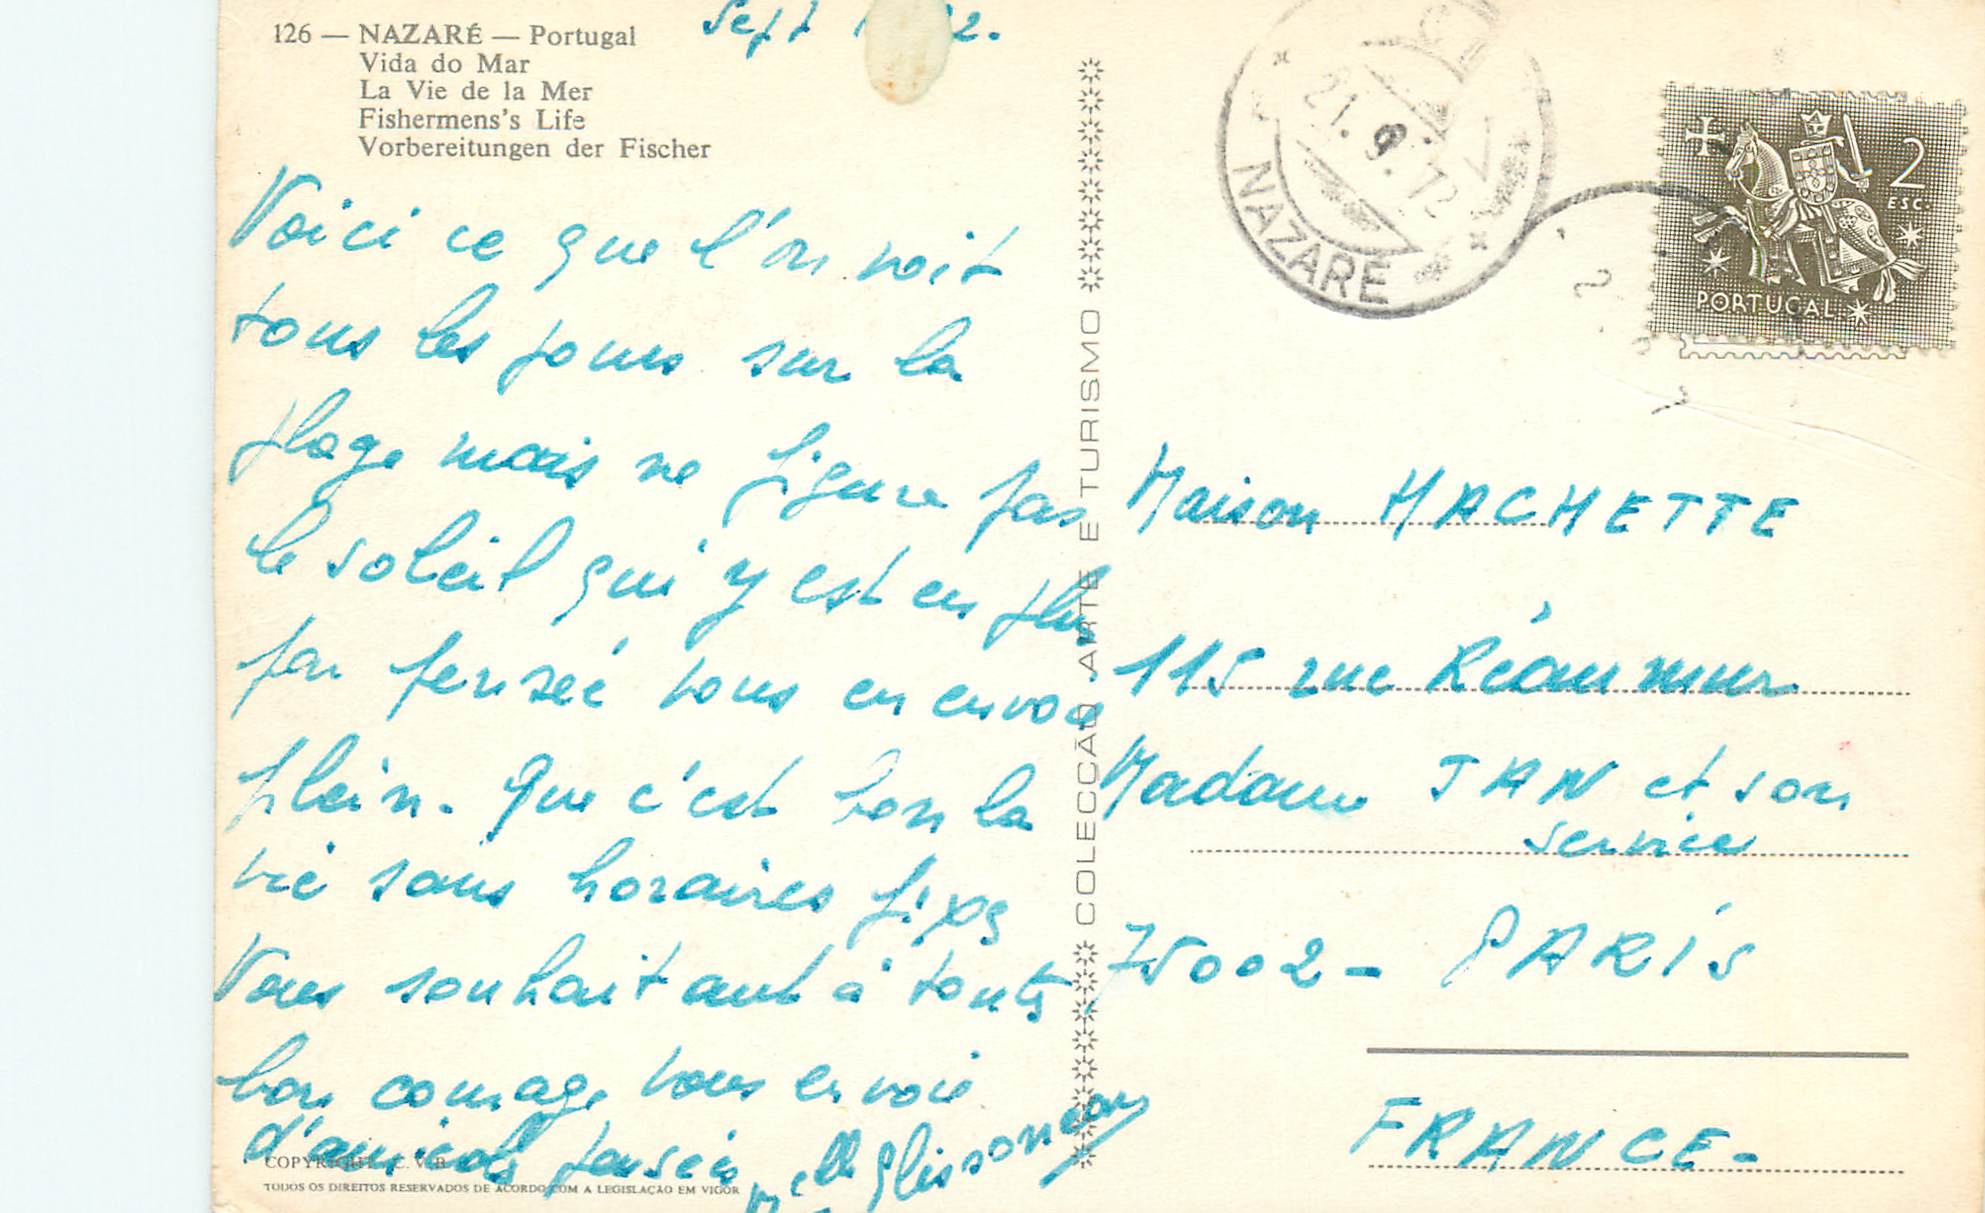 126 — NAZARÉ — Portugal
Vida do Mar
La Vie de la Mer
Fishermens's Life
Vorbereitungen der Fischer
Sept 2.
Voici ce que l'on voit
tous les jours sur la
plage mais ne figure pas
le soleil qui y est en plus
par pensée vous en envoie
plein. Que c'est bon la
vie sans horaires fixes
Vous souhaitant à toutes
bon courage vous envoie
d'amicales pensées
Melle
COPYRIGHT C. V. B.
TODOS OS DIREITOS RESERVADOS DE ACORDO COM A LEGISLAÇÃO EM VIGOR
COLECÇÃO ARTE E TURISMO
21.9.72
NAZARÉ
2
ESC.
PORTUGAL
Maison HACHETTE
115 rue Réaumur
Madame JAN et son
service
75002 - PARIS
FRANCE -